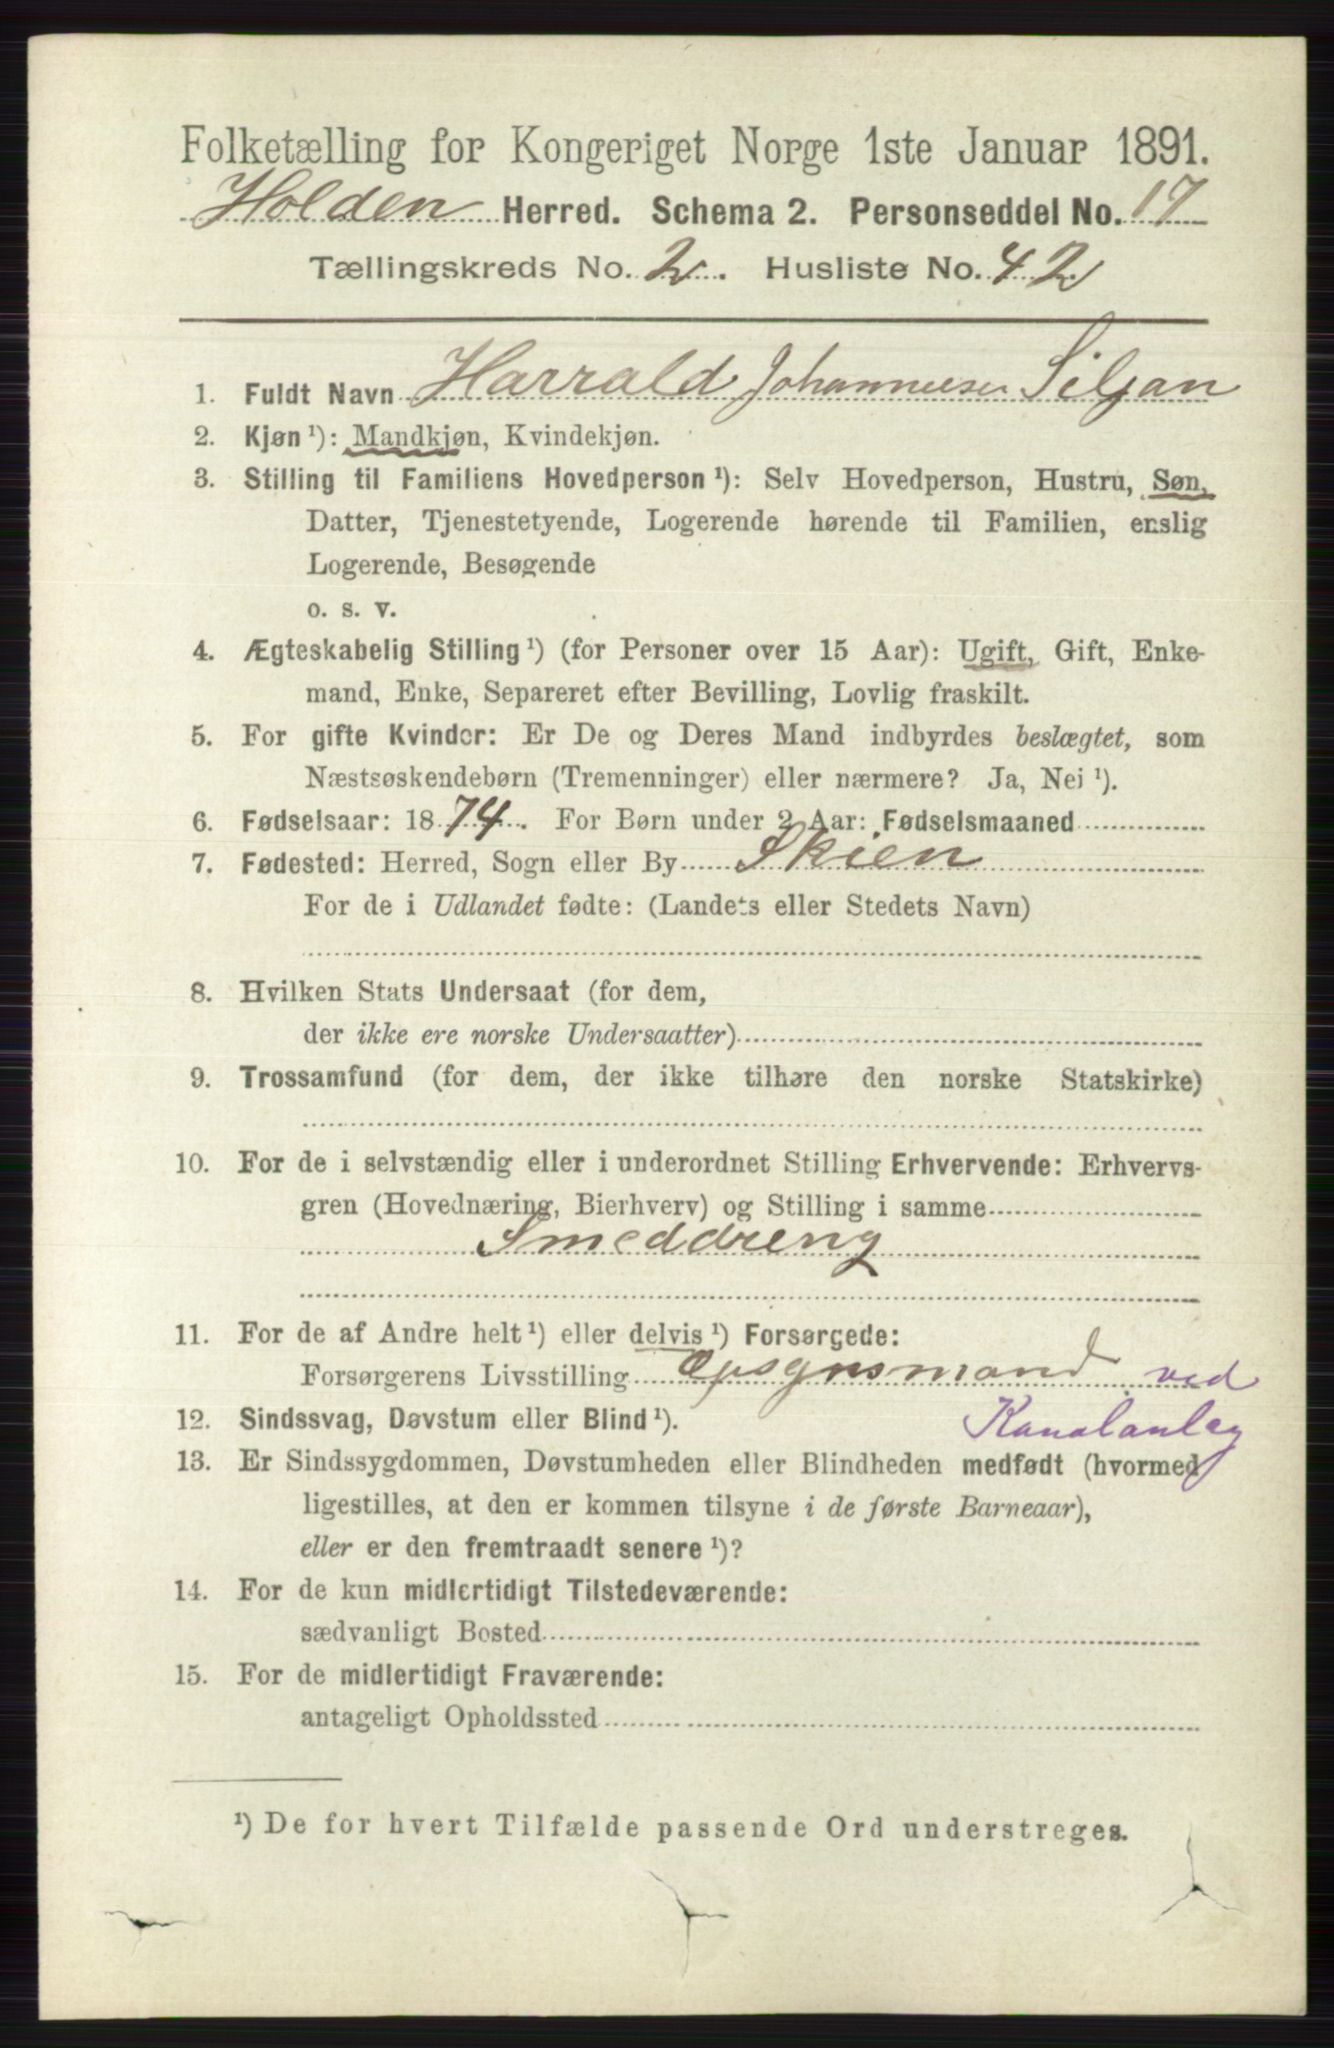 Folketælling for Kongeriget Norge 1ste Januar 1891.
Holden Herred. Schema 2. Personseddel No. 17
Tællingskreds No. 2. Husliste No. 42
1. Fuldt Navn Harrald Johannesen Siljan
2. Kjøn ¹): Mandkjøn, Kvindekjøn.
3. Stilling til Familiens Hovedperson ¹): Selv Hovedperson, Hustru, Søn,
Datter, Tjenestetyende, Logerende hørende til Familien, enslig
Logerende, Besøgende
o. s. v.
4. Ægteskabelig Stilling ¹) (for Personer over 15 Aar): Ugift, Gift, Enke-
mand, Enke, Separeret efter Bevilling, Lovlig fraskilt.
5. For gifte Kvinder: Er De og Deres Mand indbyrdes beslægtet, som
Næstsøskendebørn (Tremenninger) eller nærmere? Ja, Nei ¹).
6. Fødselsaar: 1874. For Børn under 2 Aar: Fødselsmaaned
7. Fødested: Herred, Sogn eller By Skien
For de i Udlandet fødte: (Landets eller Stedets Navn)
8. Hvilken Stats Undersaat (for dem,
der ikke ere norske Undersaatter)
9. Trossamfund (for dem, der ikke tilhøre den norske Statskirke)
10. For de i selvstændig eller i underordnet Stilling Erhvervende: Erhvervs-
gren (Hovednæring, Bierhverv) og Stilling i samme
Smeddreng
11. For de af Andre helt ¹) eller delvis ¹) Forsørgede:
Forsørgerens Livsstilling Opsynsmand ved
Kanalanlæg
12. Sindssvag, Døvstum eller Blind ¹).
13. Er Sindssygdommen, Døvstumheden eller Blindheden medfødt (hvormed
ligestilles, at den er kommen tilsyne i de første Barneaar),
eller er den fremtraadt senere ¹)?
14. For de kun midlertidigt Tilstedeværende:
sædvanligt Bosted
15. For de midlertidigt Fraværende:
antageligt Opholdssted
¹) De for hvert Tilfælde passende Ord understreges.